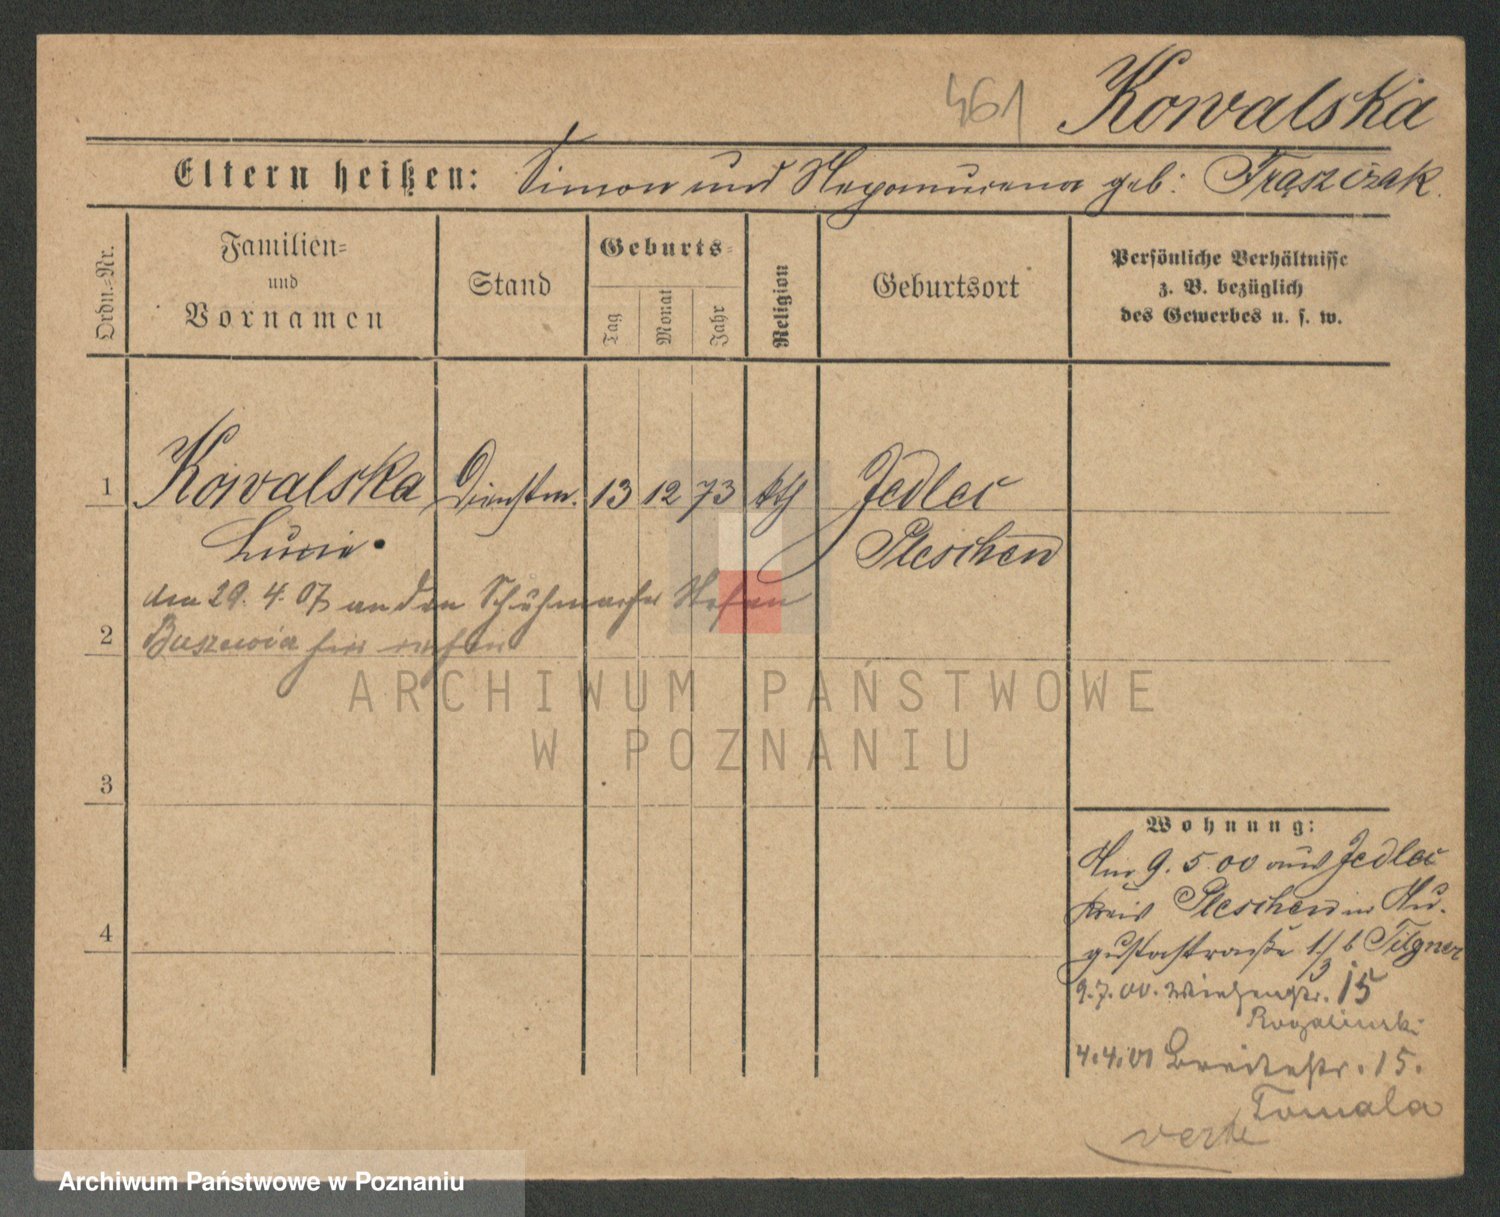 461 Kowalska
Eltern heißen: Simon und Nepomucena geb: Frąszczak
Ordn.-Nr.
Familien-
und
Vornamen
Stand
Geburts-
Tag
Monat
Jahr
Religion
Geburtsort
Persönliche Verhältnisse
z. B. bezüglich
des Gewerbes u. s. w.
1 Kowalska Dienstm. 13 12 73 kth Jedlec
Lucie Pleschen
den 29. 4. 07 an den Schuhmacher Stefan
2
3
4
ARCHIWUM PAŃSTWOWE
W POZNANIU
Wohnung:
9. 5. 00 aus Jedlec
Kreis Pleschen in Au-
gustastraße 1/3 b Tilgner
9.7.00. Wiesenstr. 15
Rogalinski
4.4.01 Breitestr. 15.
Tomala
verte
Archiwum Państwowe w Poznaniu